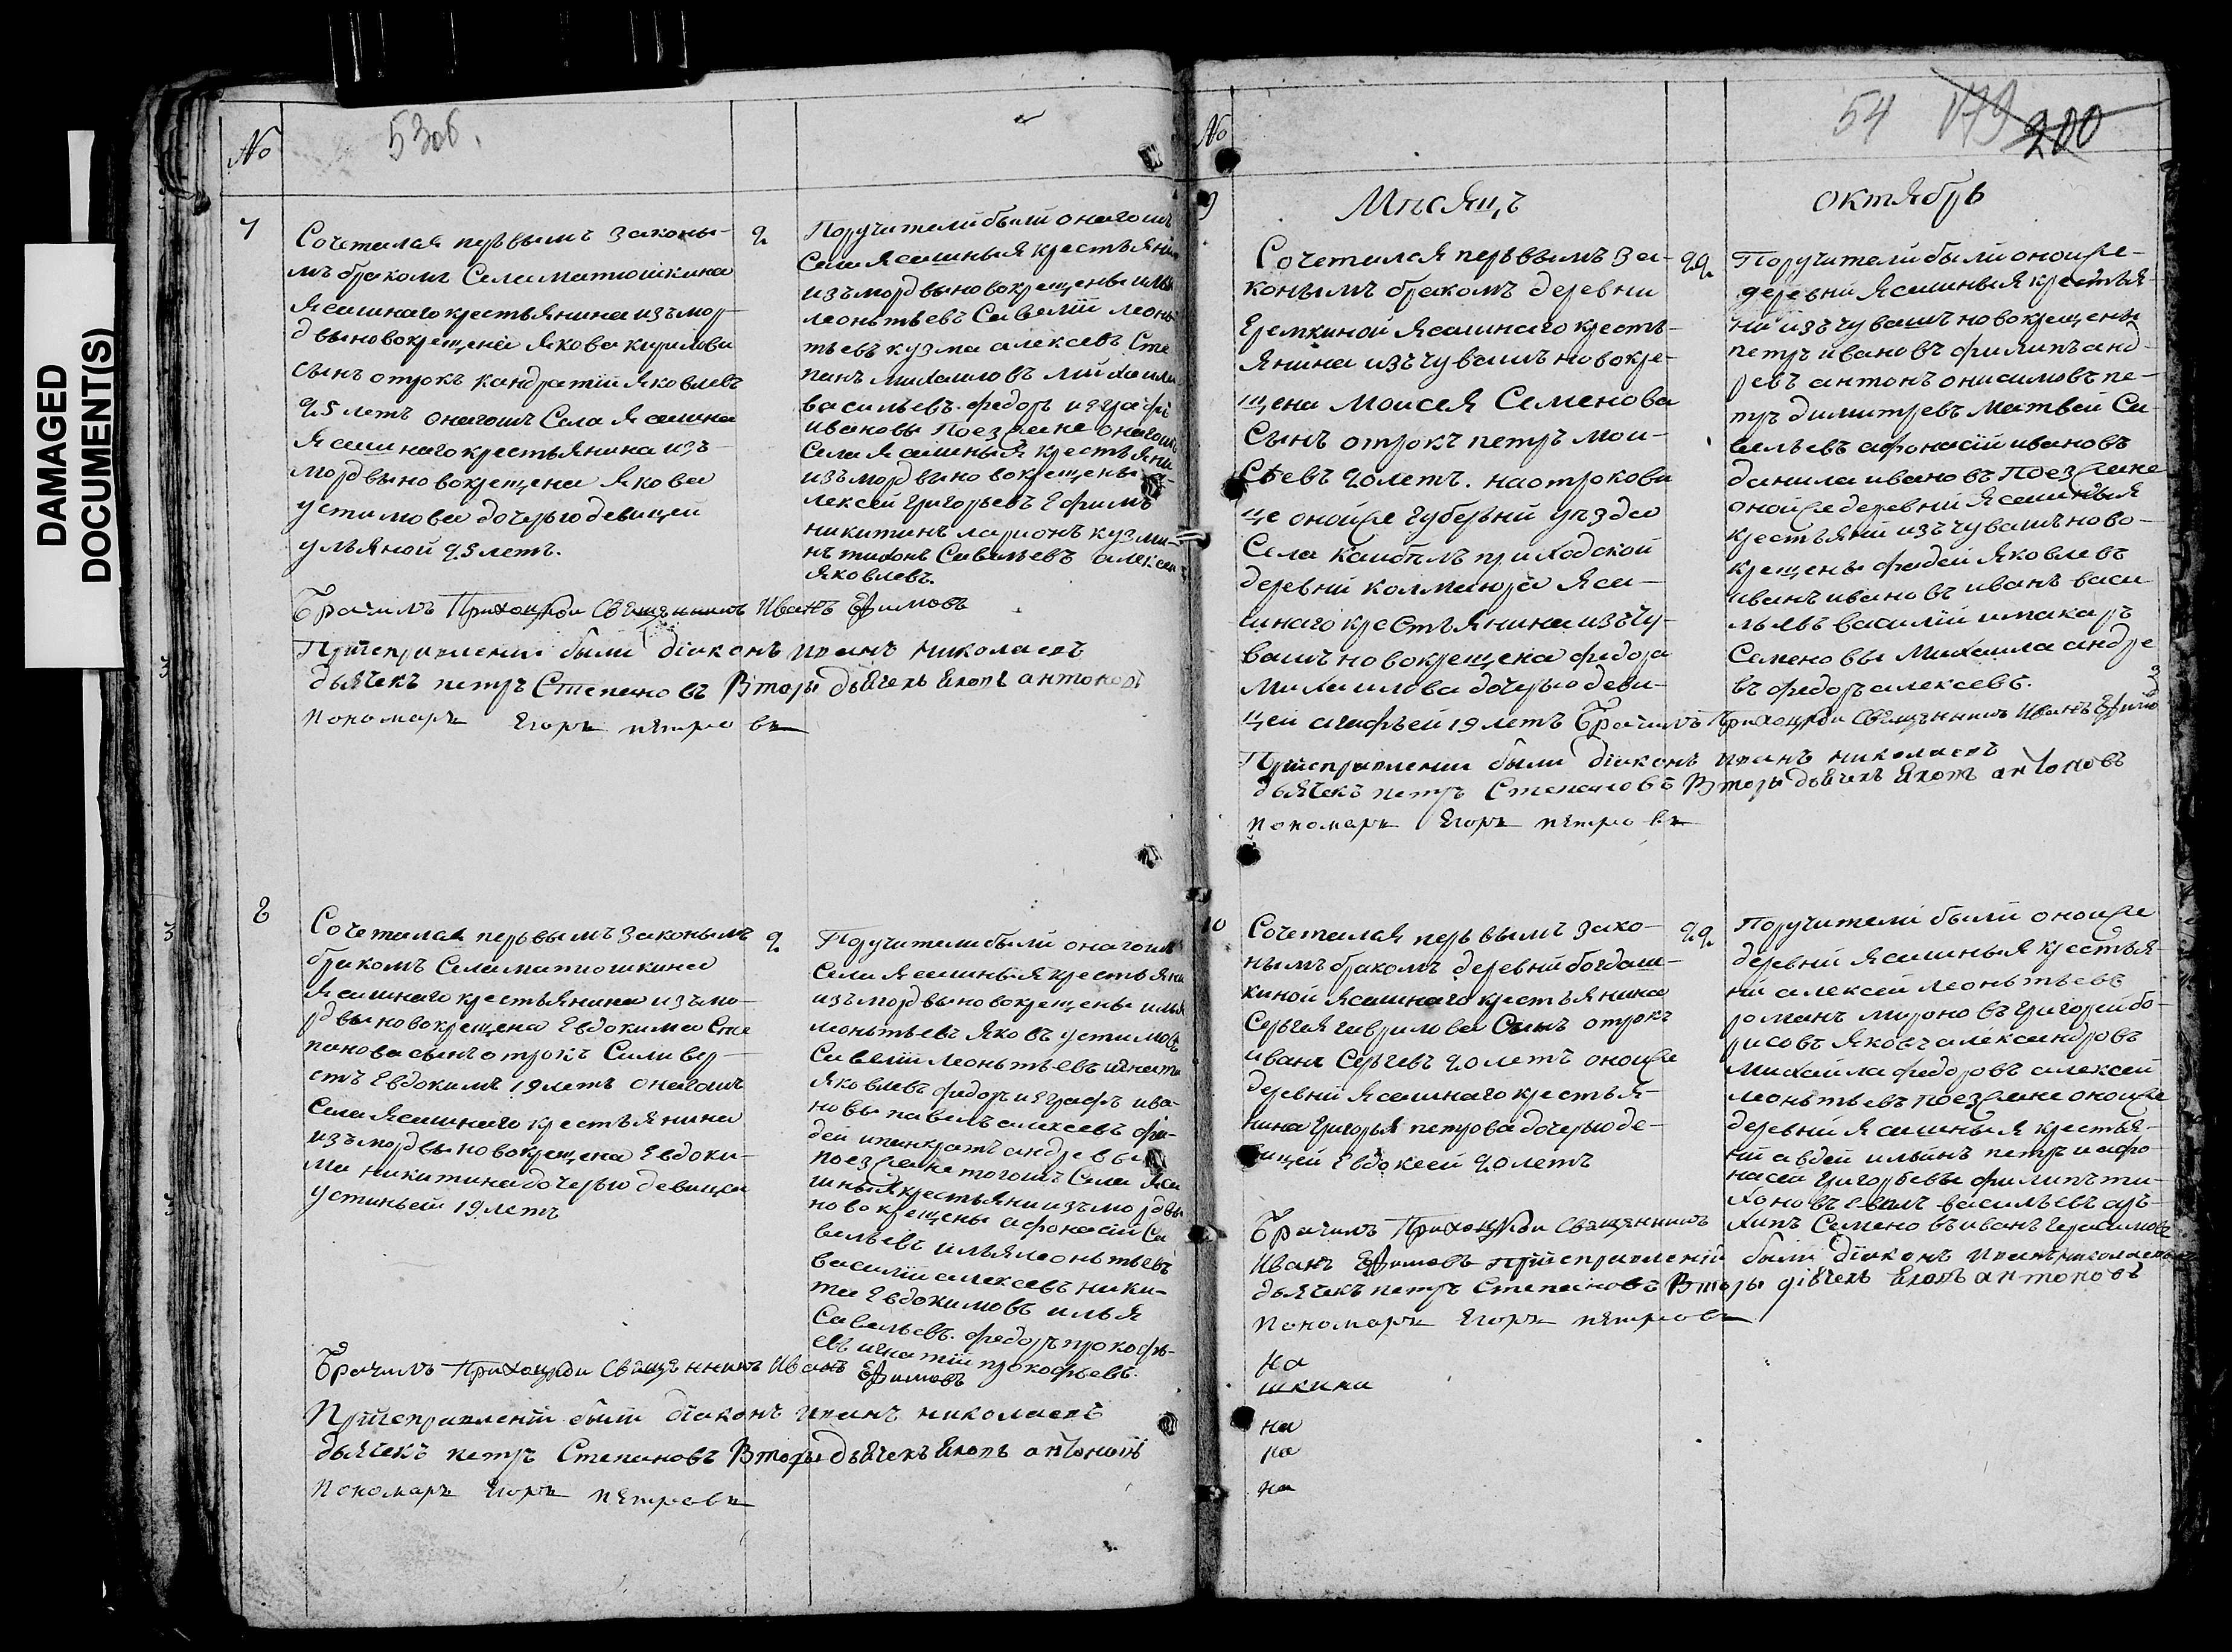 DAMAGED
DOCUMENT(S)
№
53об.
7
Сочетался первымъ законы-
мъ бракомъ Села матюшкина
Ясашнаго крестьянина изъ мор-
двы новокрещена якова кирилова
сынъ отрокъ кандратій яковлевъ
25 летъ онагошъ Села Ясашна
Ясашнаго крестьянина изъ-
мордвы новокрещена якова
устимова дочерью девицей
ульяной 25 летъ.
2
Поручители были онагошъ
Села Ясашныя крестьяни
изъ мордвы новокрещены илья
леонтьевъ Савелій леонь
тьевъ кузма алексевъ Сте
панъ михаиловъ михаила
васильевъ. федоръ и евграфъ
ивановы Поезжане онагошъ
Села Ясашныя крестьяни
изъ мордвы новокрещены а
лексей григорьевъ Ефимъ
никитинъ ларионъ кузми-
нъ тихонъ Савельевъ алексей
яковлевъ.
Брачилъ Приходской Священникъ Иванъ Ефимовъ
Приисправленіи были діаконъ иванъ николаевъ
дьячекъ петръ Степановъ Вторы дьячекъ Яковъ антоновъ
пономарь Егоръ петровъ
8
Сочетался первымъ законымъ
бракомъ Села матюшкина
Ясашнаго крестьянина изъ мо-
рдвы новокрещена Евдокима Сте
панова сынъ отрокъ Силивер-
стъ Евдокимъ 19 летъ онагошъ
Села Ясашнаго крестьянина
изъ мордвы новокрещена Евдоки-
ма никитина дочерью девицей
устиньей 19 летъ
2
Поручители были онагошъ
Села Ясашныя крестьяни
изъ мордвы новокрещены илья
леонтьевъ яковъ устимовъ
Савелій леонтьевъ игнати
яковлевъ федоръ и евграфъ ива-
новы павелъ алексевъ фа-
дей и панкратъ андревы
поезжане тогошъ Села Яса
шныя крестьяни изъ мордвы
новокрещены афонасій Са
вельевъ илья леонтьевъ
василій алексевъ ники-
та Евдокимовъ илья
Савельевъ. федоръ прокофь-
евъ игнатій прокофьевъ.
Брачилъ Приходской Священникъ Иванъ Ефимовъ
Приисправленіи были діаконъ иванъ николаевъ
дьячекъ петръ Степановъ Вторы дьячекъ Яковъ антоновъ
пономарь Егоръ петровъ
№
54 179 200
Месяцъ октябрь
9
Сочетался первымъ за-
конымъ бракомъ деревни
Еремкиной Ясашнаго кресть-
янина изъ чувашъ новокре-
щена Моисея Семенова
Сынъ отрокъ петръ мои-
Сѣевъ 20 летъ. на отрокови
це онойже губерніи уѣзда
Села приходской
деревни Яса-
шнаго крестьянина изъ чу-
вашъ новокрещена федора
Михаилова дочерью деви-
цей агафьей 19 летъ
22
Поручители были онойже-
деревни Ясашныя крестья-
ни изъ чувашъ новокрещены
петръ ивановъ филипъ анд-
ревъ антонъ онисимовъ пе-
тръ димитревъ матвей Са-
вельевъ афонасій ивановъ
данила ивановъ Поезжане
онойже деревни Ясашныя
крестьяни изъ чувашъ ново-
крещены фадей Яковлевъ
иванъ ивановъ иванъ васи
льевъ василій и макаръ
Семеновы Михаила андре
въ федоръ алексевъ.
Брачилъ Приходской Священникъ Иванъ Ефимо
Приисправленіи были діаконъ иванъ николаевъ
дьячекъ петръ Степановъ Вторы дьячекъ Яковъ антоновъ
пономарь Егоръ петровъ
10
Сочетался первымъ зако-
нымъ бракомъ деревни богдаш-
киной Ясашнаго крестьянина
Сергея гаврилова Сынъ отрокъ
иванъ Сергевъ 20 летъ онойже
деревни Ясашнаго крестья-
нина григорья петрова дочерью де-
вицей Евдокеей 20 летъ
22
Поручители были онойже
деревни Ясашныя крестья-
ни алексей леонтьевъ
романъ мироновъ григорей бо-
рисовъ яковъ александровъ
михайла федоровъ алексей
леонтьевъ поезжане онойже
деревни Ясашныя крестья-
ни авдей ильинъ петръ и афо-
насей григорьевы филипъ ти-
хоновъ васильевъ ар-
хипъ Семеновъ иванъ герасимовъ
Брачилъ Приходской Священникъ
Иванъ Ефимовъ приисправленіи были діаконъ иванъ николаевъ
дьячекъ петръ Степановъ Вторы дьячекъ Яковъ антоновъ
пономарь Егоръ петровъ
на
шкина
на
на
на